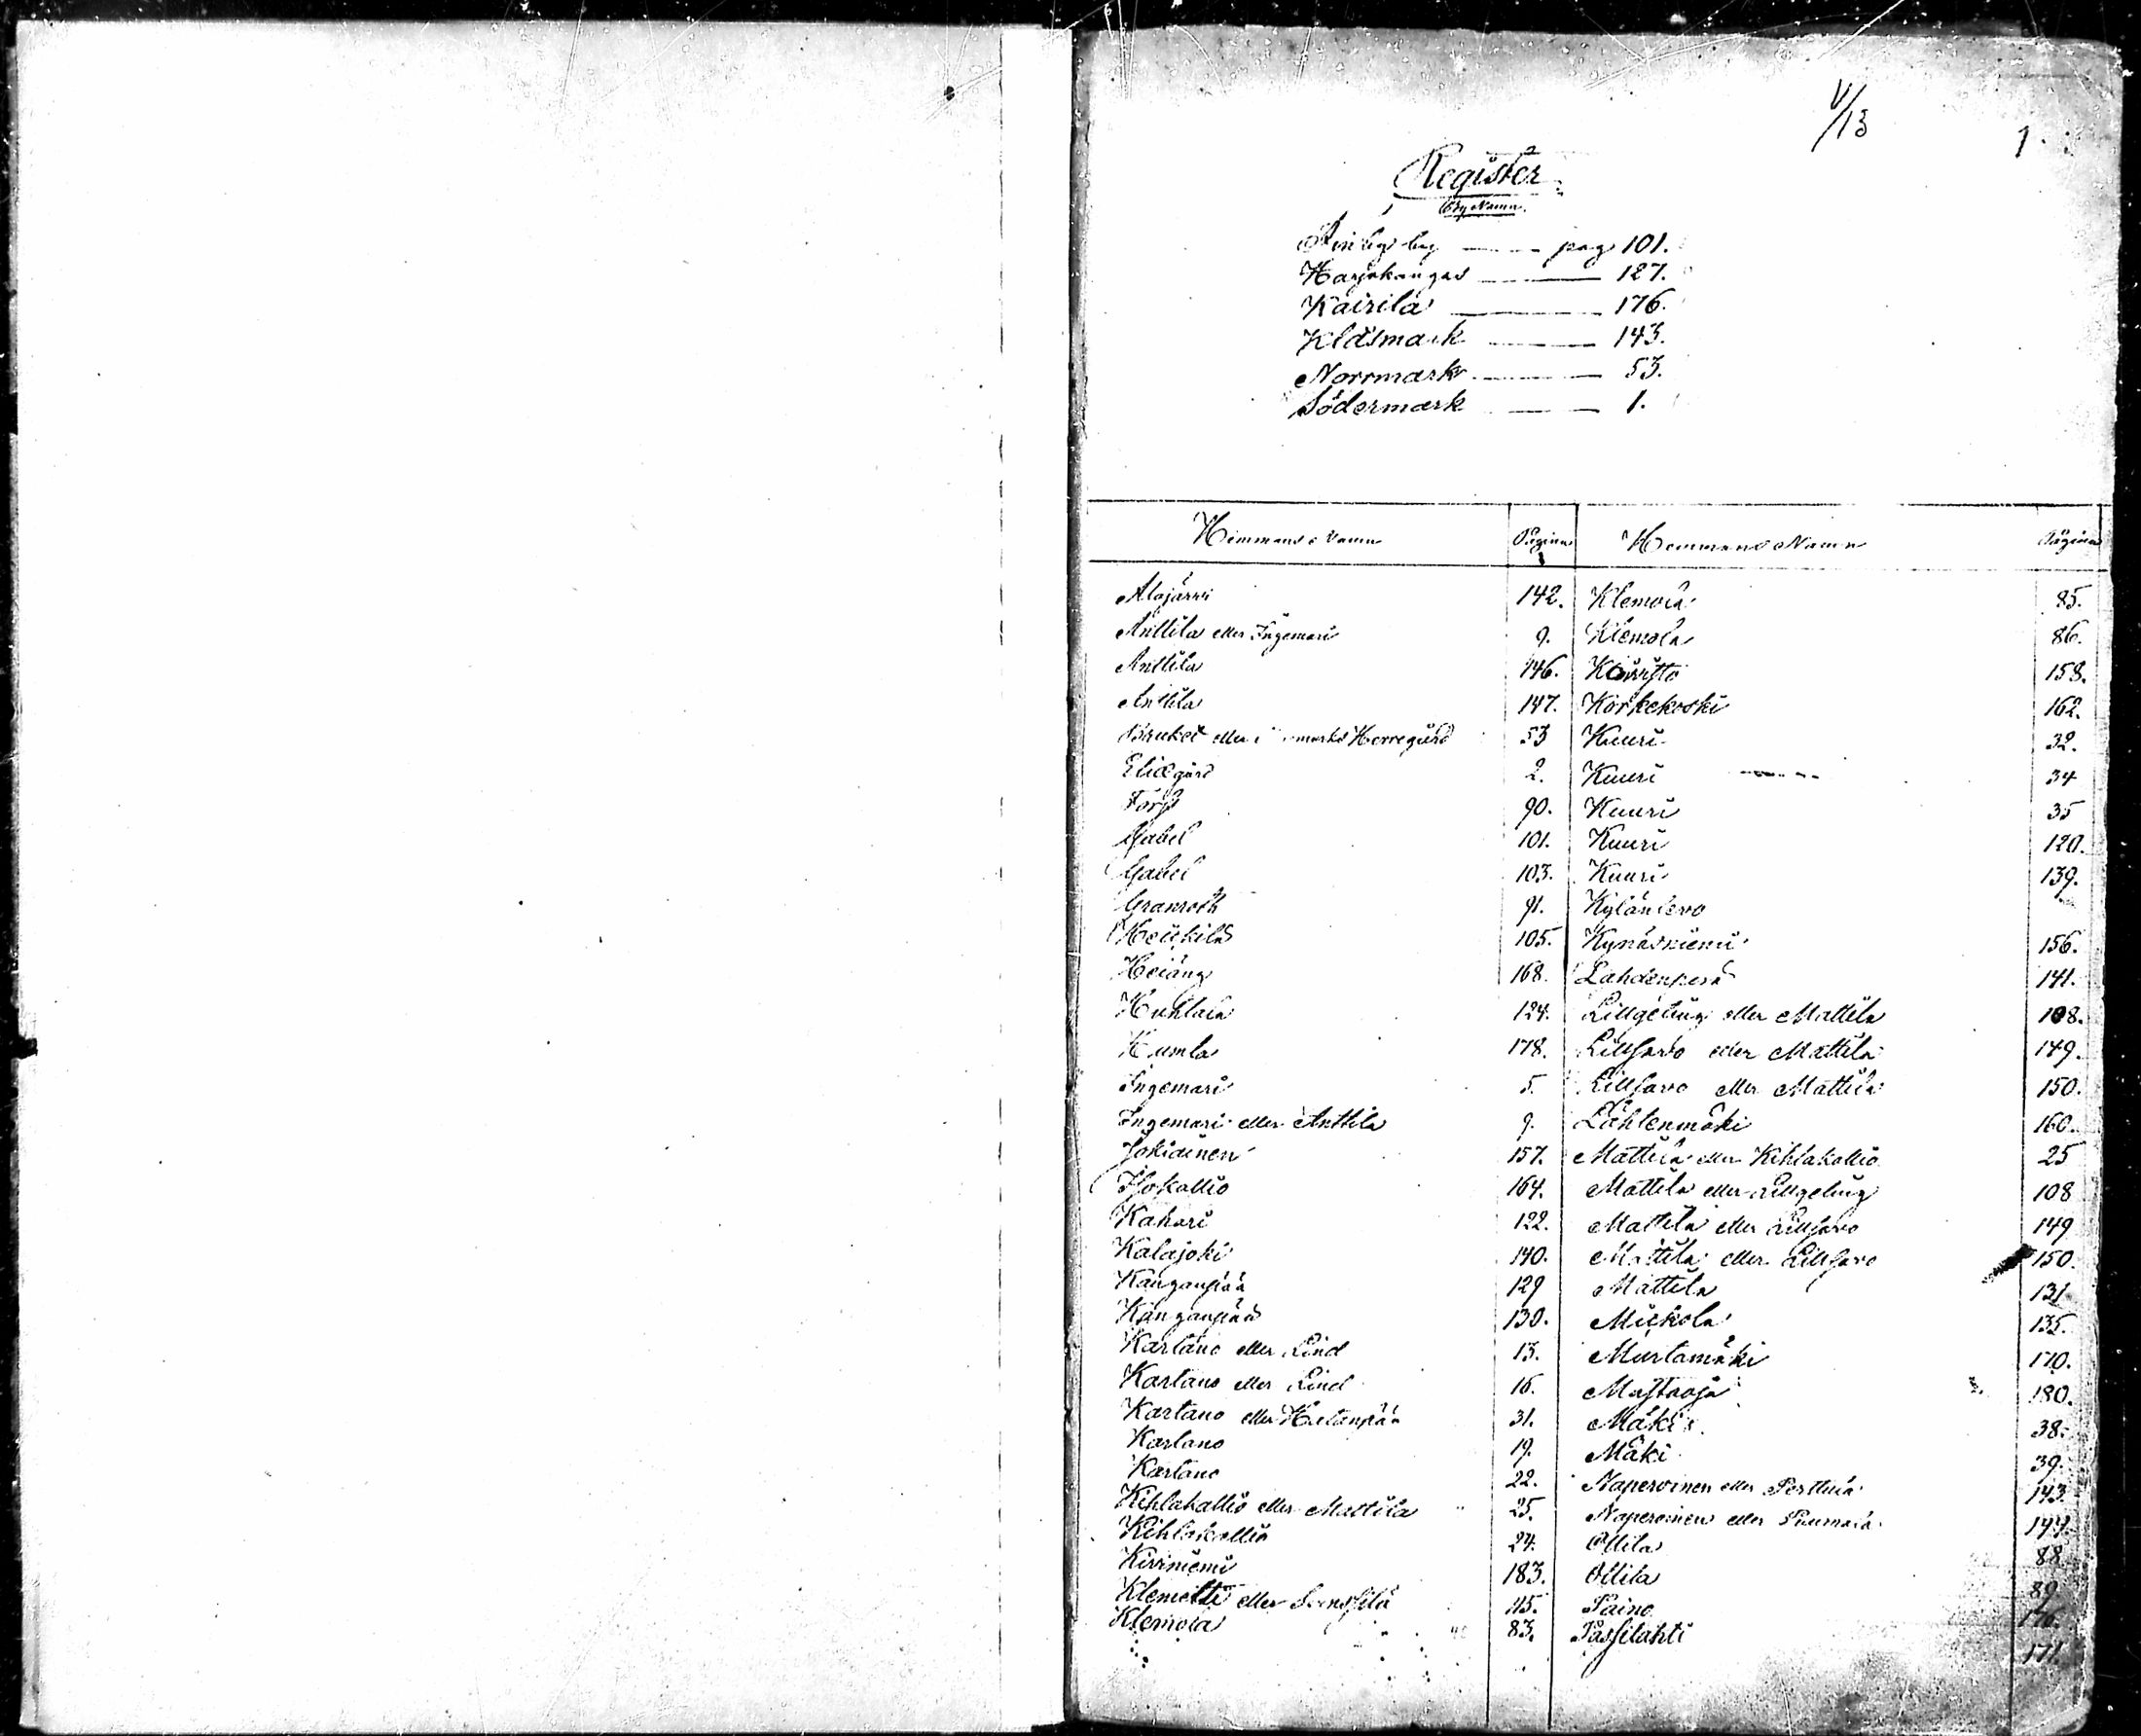 V/13
1.
Register
By Namn.
by — pag 101.
Harjakangas — 127.
Kairila — 176.
Klåsmark — 143.
Norrmark — 53.
Södermark — 1.
Hemmans Namn Pagina Hemmans Namn Pagina
Alajärvi 142. Klemola 85.
Anttila eller Ingemari 9. Klemola 86.
Anttila 146. 158.
Anttila 147. Korkekoski 162.
Bruket eller Herregård 53 Kuuri 32.
Elisegård 2. Kuuri 34
Fors 90. Kuuri 35
Gabel 101. Kuuri 120.
Gabel 103. Kuuri 139.
Granroth 91. Kylänlevo
Heikkilä 105. Kynäsniemi 156.
168. Lahdenperä 141.
Huhtala 124. Lillgeting eller Mattila 108.
Humla 178. Lillsavo eller Mattila 149.
Ingemari 5. Lillsavo eller Mattila 150.
Ingemari eller Anttila 9. Lähtenmäki 160.
Jokiainen 157. Mattila eller Kihlakallio 25
Isokallio 164. Mattila eller Lillgeting 108
Kahari 122. Mattila eller Lillsavo 149
Kalajoki 140. Mattila eller Lillsavo 150.
Kanganpää 129 Mattila 131
Kanganpää 130. Mickola 135.
Kartano eller Lind 13. Murtamäki 170.
Kartano eller Lind 16. Mustaoja 180.
Kartano eller Hietanpää 31. Mäki 38.
Kartano 19. Mäki 39.
Kartano 22. Naperoinen eller Perttula 143.
Kihlakallio eller Mattila 25. Naperoinen eller 144.
Kihlakallio 24. Ollila 88
Kiviniemi 183. Ollila 89
Klemetti eller 115. Paino 176.
Klemola 83. Passilahti 171.